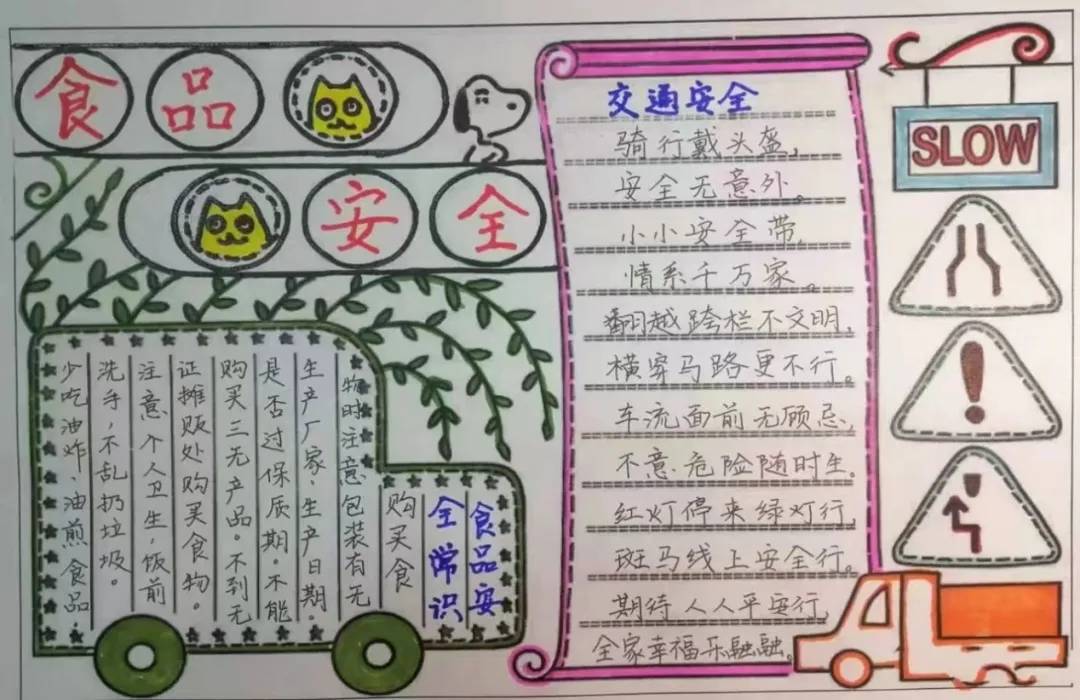 食品
安全
食品安
全常识
购买食
物时注意包装有无
生产厂家、生产日期。
是否过保质期。不能
购买三无产品。不到无
证摊贩处购买食物。
注意个人卫生,饭前
洗手,不乱扔垃圾。
少吃油炸、油煎食品.
交通安全
骑行戴头盔,
安全无意外。
小小安全带,
情系千万家。
翻越跨栏不文明,
横穿马路更不行。
车流面前无顾忌,
不意危险随时生。
红灯停来绿灯行,
斑马线上安全行。
期待人人平安行,
全家幸福乐融融。
SLOW